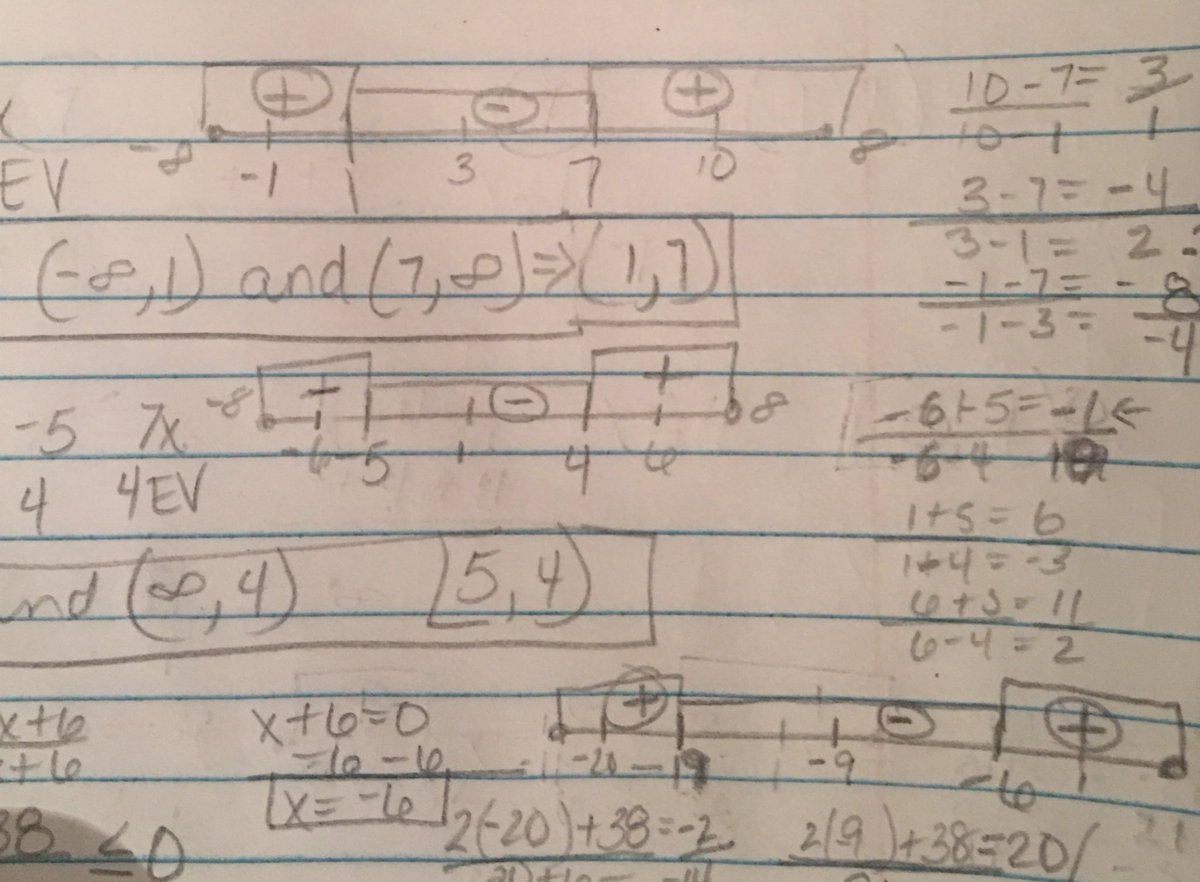 + - + 10-7= 3
-∞ -1 1 3 7 10 ∞ 10-1 1
EV 3-7= -4
(-∞,1) and (7,∞)=>(1,7) 3-1= 2
-1-7= -8
-1-3= -4
+ - +
-5 7x -∞ -6 -5 1 4 6 ∞ -6+5=-1←
4 4EV -6-4
1+5=6
1+4=-3
nd (∞,4) [5,4) 6+5=11
6-4=2
x+6 x+6=0 + - +
+6 =6 -6 -20 -19 -9 -6
x=-6
38 ≤0 2(-20)+38=-2 2(9)+38=20/